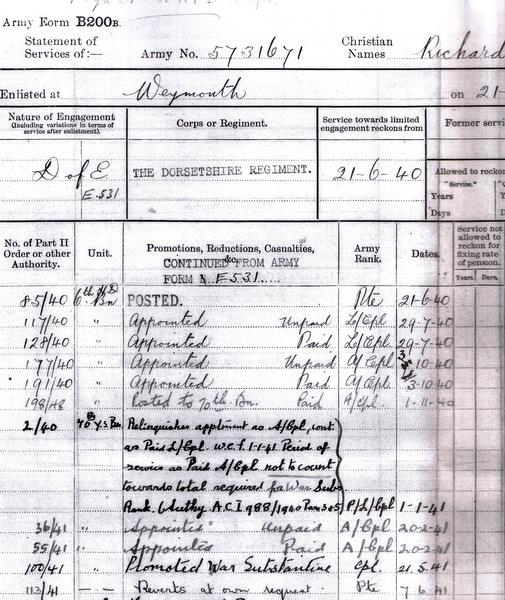 Army Form B200B.
Statement of Services of:— Army No. 5731671 Christian Names Richard
Enlisted at Weymouth on 21-
Nature of Engagement Corps or Regiment. Service towards limited Former servi
(Including variations in terms of service after enlistment). engagement reckons from
D of E THE DORSETSHIRE REGIMENT. 21-6-40 Allowed to reckon
E.531 "Service."
Years
Days
No. of Part II Order or other Authority. Unit. Promotions, Reductions, Casualties, Army Rank. Dates. Service not allowed to reckon for fixing rate of pension.
CONTINUED FROM ARMY
FORM E.531..... Years. Days.
85/40 6th H.D Bn POSTED. Pte 21-6-40
117/40 " Appointed Unpaid L/Cpl 29-7-40
128/40 " Appointed Paid L/Cpl 29-7-40
177/40 " Appointed Unpaid A/Cpl 3-10-40
191/40 " Appointed Paid A/Cpl 3-10-40
198/48 " Posted to 70th Bn. Paid A/Cpl. 1-11-40
2/40 70th Y.S. Bn. Relinquishes apptment as A/Cpl, cont.
as Paid L/Cpl. W.E.F. 1-1-41. Period of
service as Paid A/Cpl not to count
towards total required for War Subs
Rank. (Authy. A.C.I 988/1940 Para 385) P/L/Cpl 1-1-41
36/41 " Appointed Unpaid A/Cpl 20-2-41
55/41 " Appointed Paid A/Cpl 20-2-41
100/41 " Promoted War Substantive Cpl. 21.5.41
113/41 — Reverts at own request. Pte 7.6.41